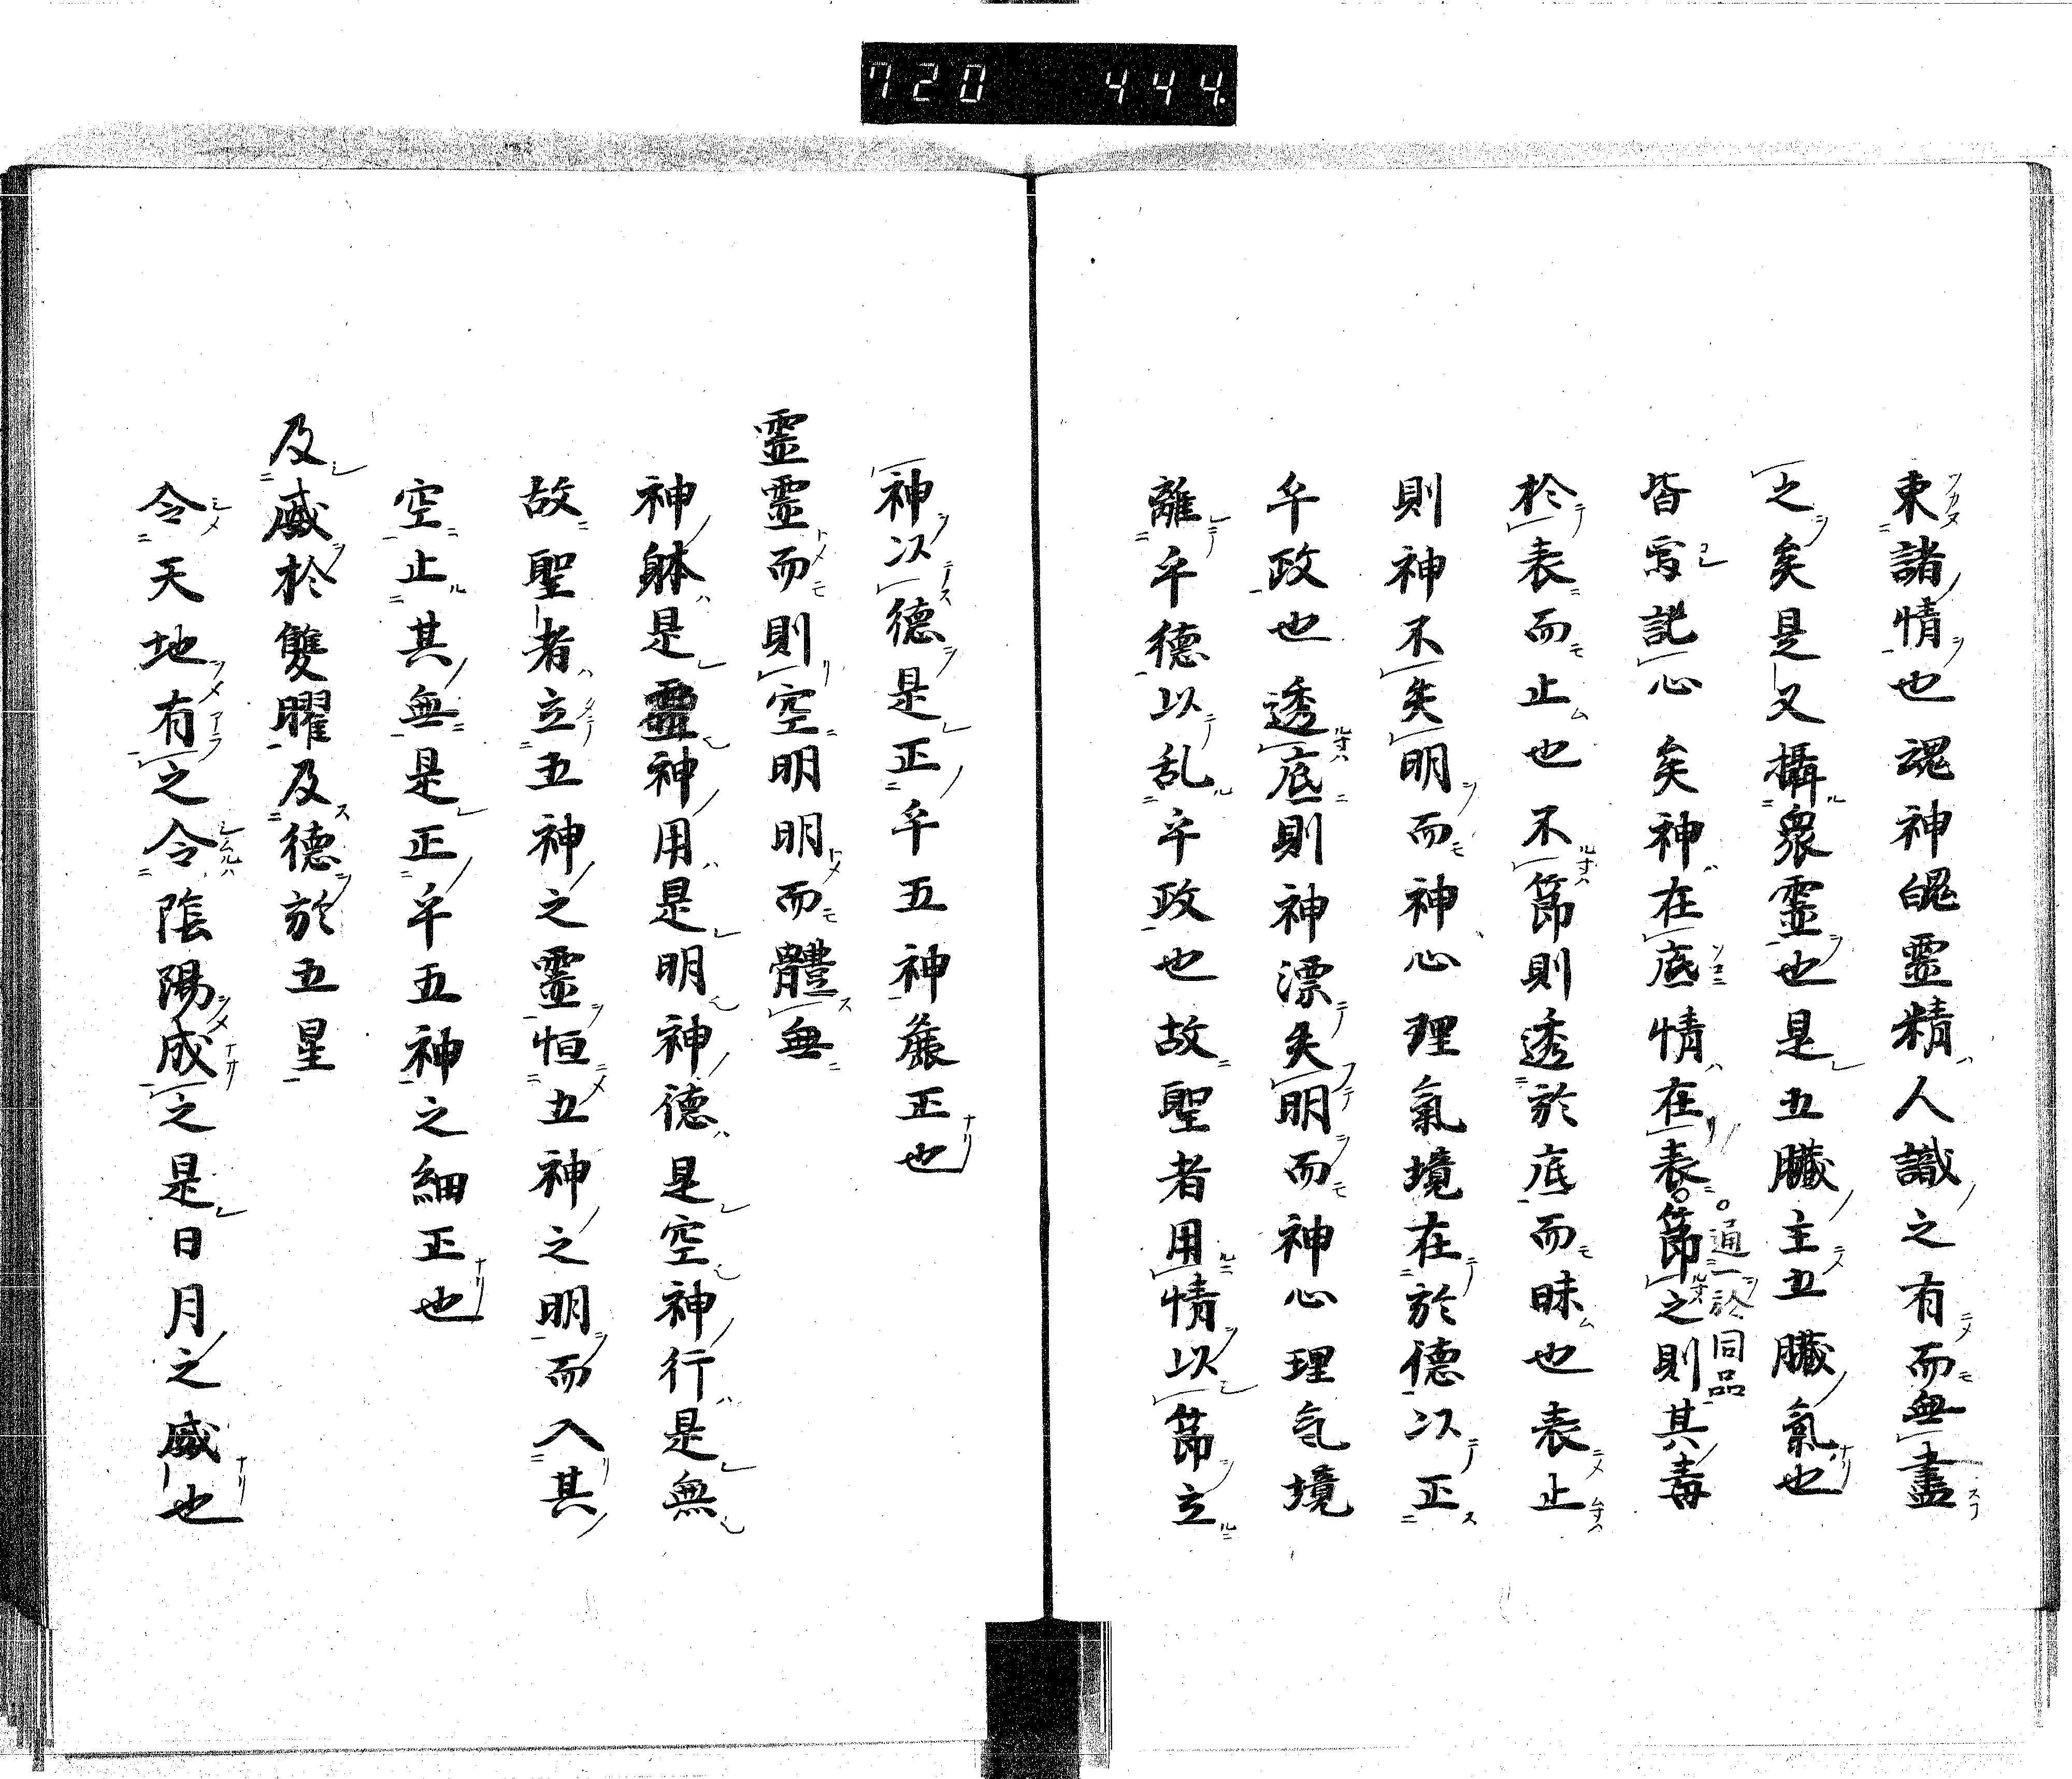 720 444.
束諸情也魂神魄霊精人識之有而無盡
之矣是又攝衆霊也是五臓主五臓氣也
皆寫託心矣神在底情在表。節之則其毒
。通一於同品
於表而止也不節則透於底而昧也表止
則神不失明而神心理氣境在於德以正
乎政也透底則神漂失明而神心理気境
離乎德以乱乎政也故聖者用情以節立
神以德是正乎五神麁正也
霊霊而則空明明而體無
神躰是靈神用是明神德是空神行是無
故聖者立五神之霊恒五神之明而入其
空止其無是正乎五神之細正也
及威於雙曜及德於五星
令天地有之令陰陽成之是日月之威也